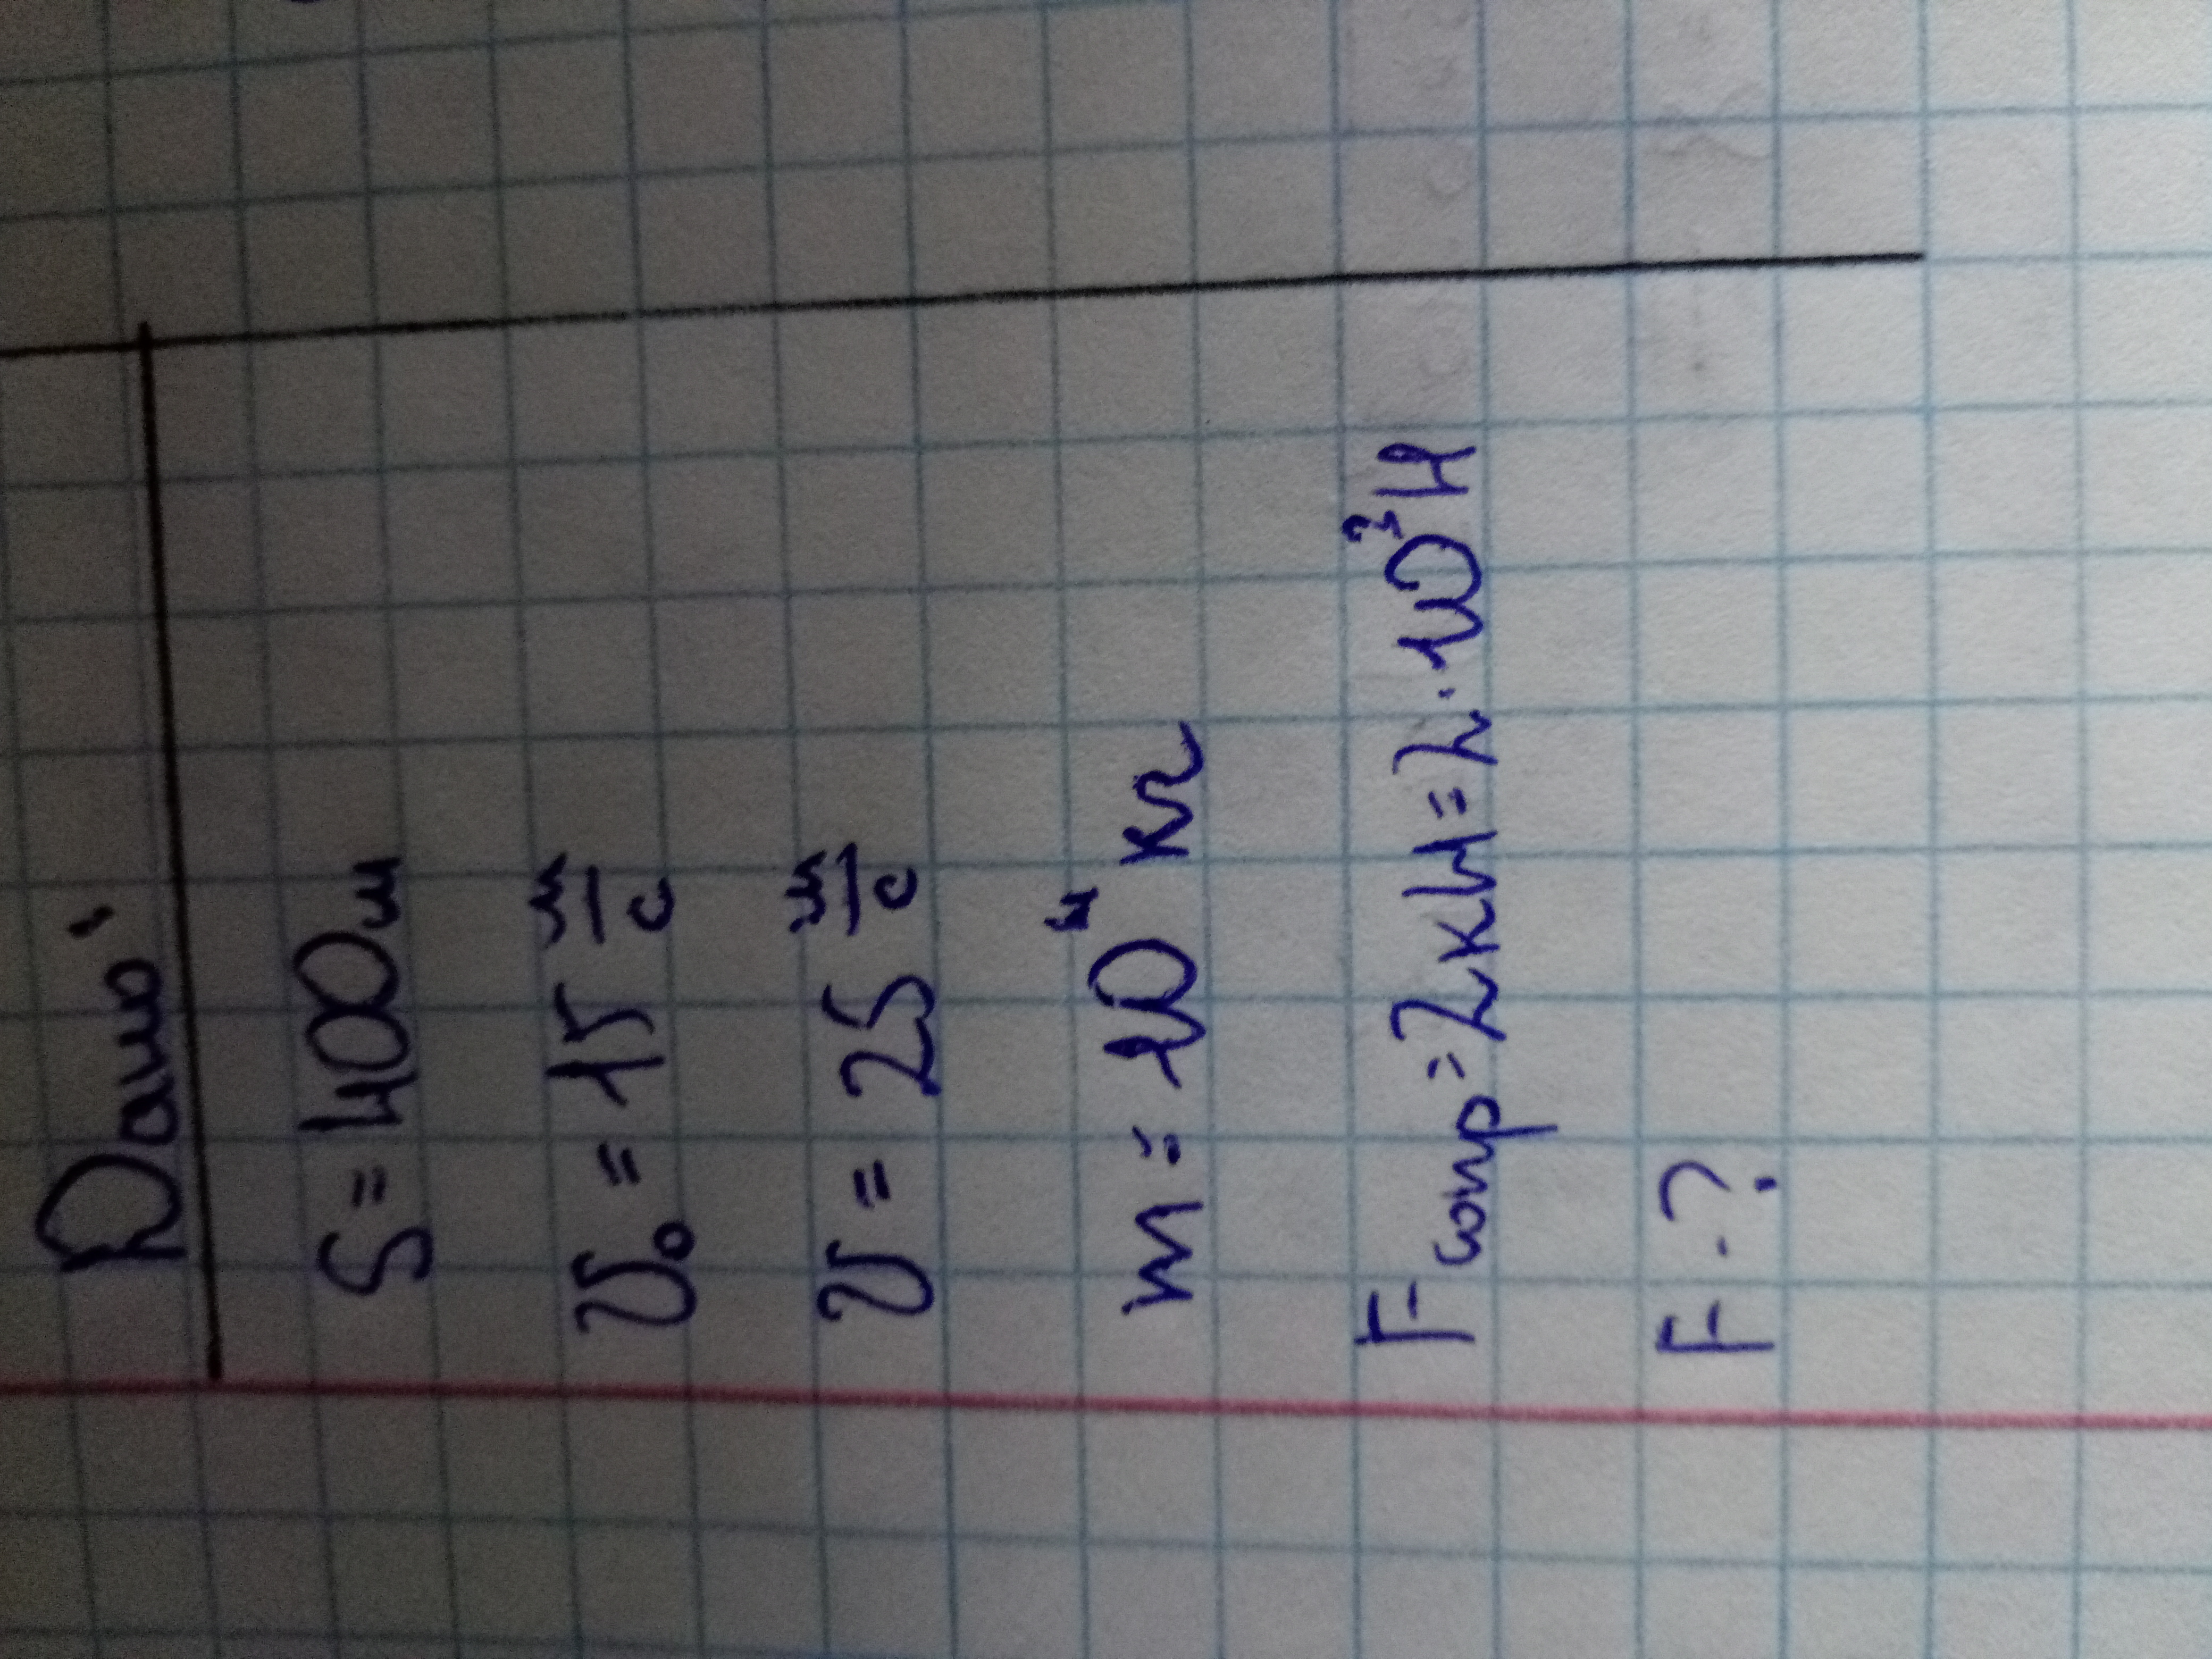 Дано:
S = 400м
υ₀ = 15 м/с
υ = 25 м/с
m = 10⁴ кг
Fсопр = 2кН = 2·10³Н
F - ?